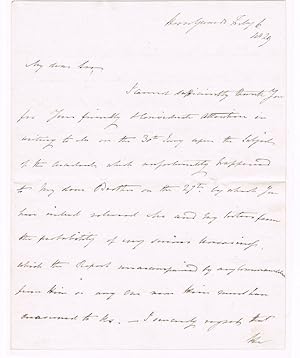 Horse Guards Feby 6
1829
My dear Sir,
I cannot sufficiently thank You
for Your friendly & considerate attention in
writing to Me on the 30th upon the Subject
of the accident which unfortunately happened
to My dear Brother on the 27th. by which You
have indeed relieved Me and my Sisters from
the probability of very serious uneasiness,
which the Report unaccompanied by any Communication
from Him or any one near Him must have
occasioned to Us. — I sincerely rejoice that
the